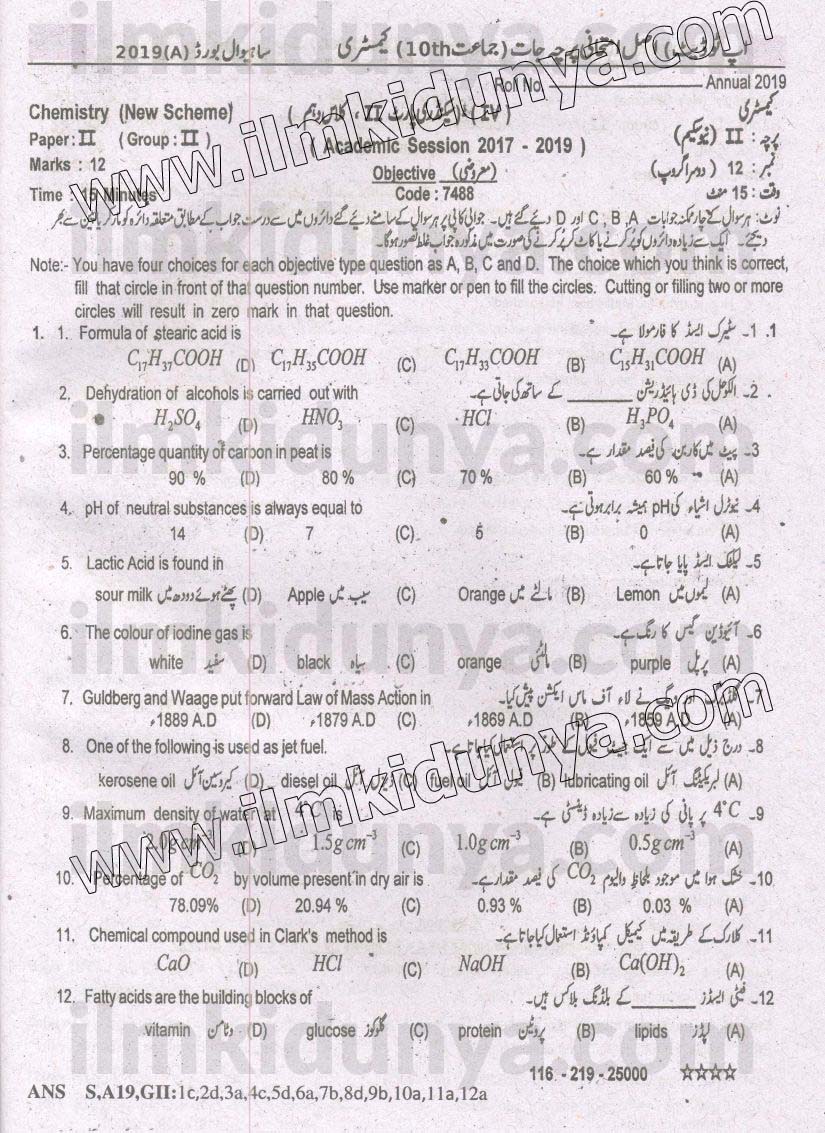 2019(A) ساہیوال بورڈ کیمسٹری (10th جماعت)
Roll No. Annual 2019
Chemistry (New Scheme) کیمسٹری
Paper : II ( Group : II ) پرچہ : II (نیو سکیم)
( Academic Session 2017 - 2019 )
Marks : 12 Objective (معروضی) نمبر : 12 (دوسرا گروپ)
Time : 15 Minutes Code : 7488 وقت : 15 منٹ
نوٹ: ہر سوال کے چار ممکنہ جوابات A, B, C اور D دیے گئے ہیں۔ جوابی کاپی پر ہر سوال کے سامنے دیے گئے دائروں میں سے درست جواب کے مطابق متعلقہ دائرہ کو مارکر یا پین سے بھر
دیجئے۔ ایک سے زیادہ دائروں کو پُر کرنے یا کاٹ کر پُر کرنے کی صورت میں مذکورہ جواب غلط تصور ہوگا۔
Note:- You have four choices for each objective type question as A, B, C and D. The choice which you think is correct,
fill that circle in front of that question number. Use marker or pen to fill the circles. Cutting or filling two or more
circles will result in zero mark in that question.
1. 1. Formula of stearic acid is 1. 1- سٹیرک ایسڈ کا فارمولا ہے۔
C₁₇H₃₇COOH (D) C₁₇H₃₅COOH (C) C₁₇H₃₃COOH (B) C₁₅H₃₁COOH (A)
2. Dehydration of alcohols is carried out with 2- الکوحل کی ڈی ہائیڈریشن ________ کے ساتھ کی جاتی ہے۔
H₂SO₄ (D) HNO₃ (C) HCl (B) H₃PO₄ (A)
3. Percentage quantity of carbon in peat is 3- پیٹ میں کاربن کی فیصد مقدار ہے۔
90 % (D) 80 % (C) 70 % (B) 60 % (A)
4. pH of neutral substances is always equal to 4- نیوٹرل اشیاء کی pH ہمیشہ برابر ہوتی ہے۔
14 (D) 7 (C) 6 (B) 0 (A)
5. Lactic Acid is found in 5- لیکٹک ایسڈ پایا جاتا ہے۔
sour milk پھٹے ہوئے دودھ میں (D) Apple سیب میں (C) Orange مالٹے میں (B) Lemon لیموں میں (A)
6. The colour of iodine gas is 6- آئیوڈین گیس کا رنگ ہے۔
white سفید (D) black سیاہ (C) orange مالٹئی (B) purple پرپل (A)
7. Guldberg and Waage put forward Law of Mass Action in 7- گلڈبرگ اور ویگ نے لاء آف ماس ایکشن پیش کیا۔
1889 A.D ء (D) 1879 A.D ء (C) 1869 A.D ء (B) 1859 A.D ء (A)
8. One of the following is used as jet fuel. 8- درج ذیل میں سے ایک جیٹ فیول کے طور پر استعمال کیا جاتا ہے۔
kerosene oil کیروسین آئل (D) diesel oil ڈیزل آئل (C) fuel oil فیول آئل (B) lubricating oil لبریکیٹنگ آئل (A)
9. Maximum density of water at 4°C is 9- 4°C پر پانی کی زیادہ سے زیادہ ڈینسٹی ہے۔
.0 g cm⁻³ (D) 1.5 g cm⁻³ (C) 1.0 g cm⁻³ (B) 0.5 g cm⁻³ (A)
10. Percentage of CO₂ by volume present in dry air is 10- خشک ہوا میں موجود بلحاظ والیوم CO₂ کی فیصد مقدار ہے۔
78.09% (D) 20.94 % (C) 0.93 % (B) 0.03 % (A)
11. Chemical compound used in Clark's method is 11- کلارک کے طریقہ میں کیمیکل کمپاؤنڈ استعمال کیا جاتا ہے۔
CaO (D) HCl (C) NaOH (B) Ca(OH)₂ (A)
12. Fatty acids are the building blocks of 12- فیٹی ایسڈز ________ کے بلڈنگ بلاکس ہیں۔
vitamin وٹامن (D) glucose گلوکوز (C) protein پروٹین (B) lipids لپڈز (A)
116 - 219 - 25000 ☆☆☆☆
ANS S,A19,GII:1c,2d,3a,4c,5d,6a,7b,8d,9b,10a,11a,12a
www.ilmkidunya.com
www.ilmkidunya.com
ilmkidunya.com
ilmkidunya.com
ilmkidunya.com
ilmkidunya.com
ilmkidunya.com